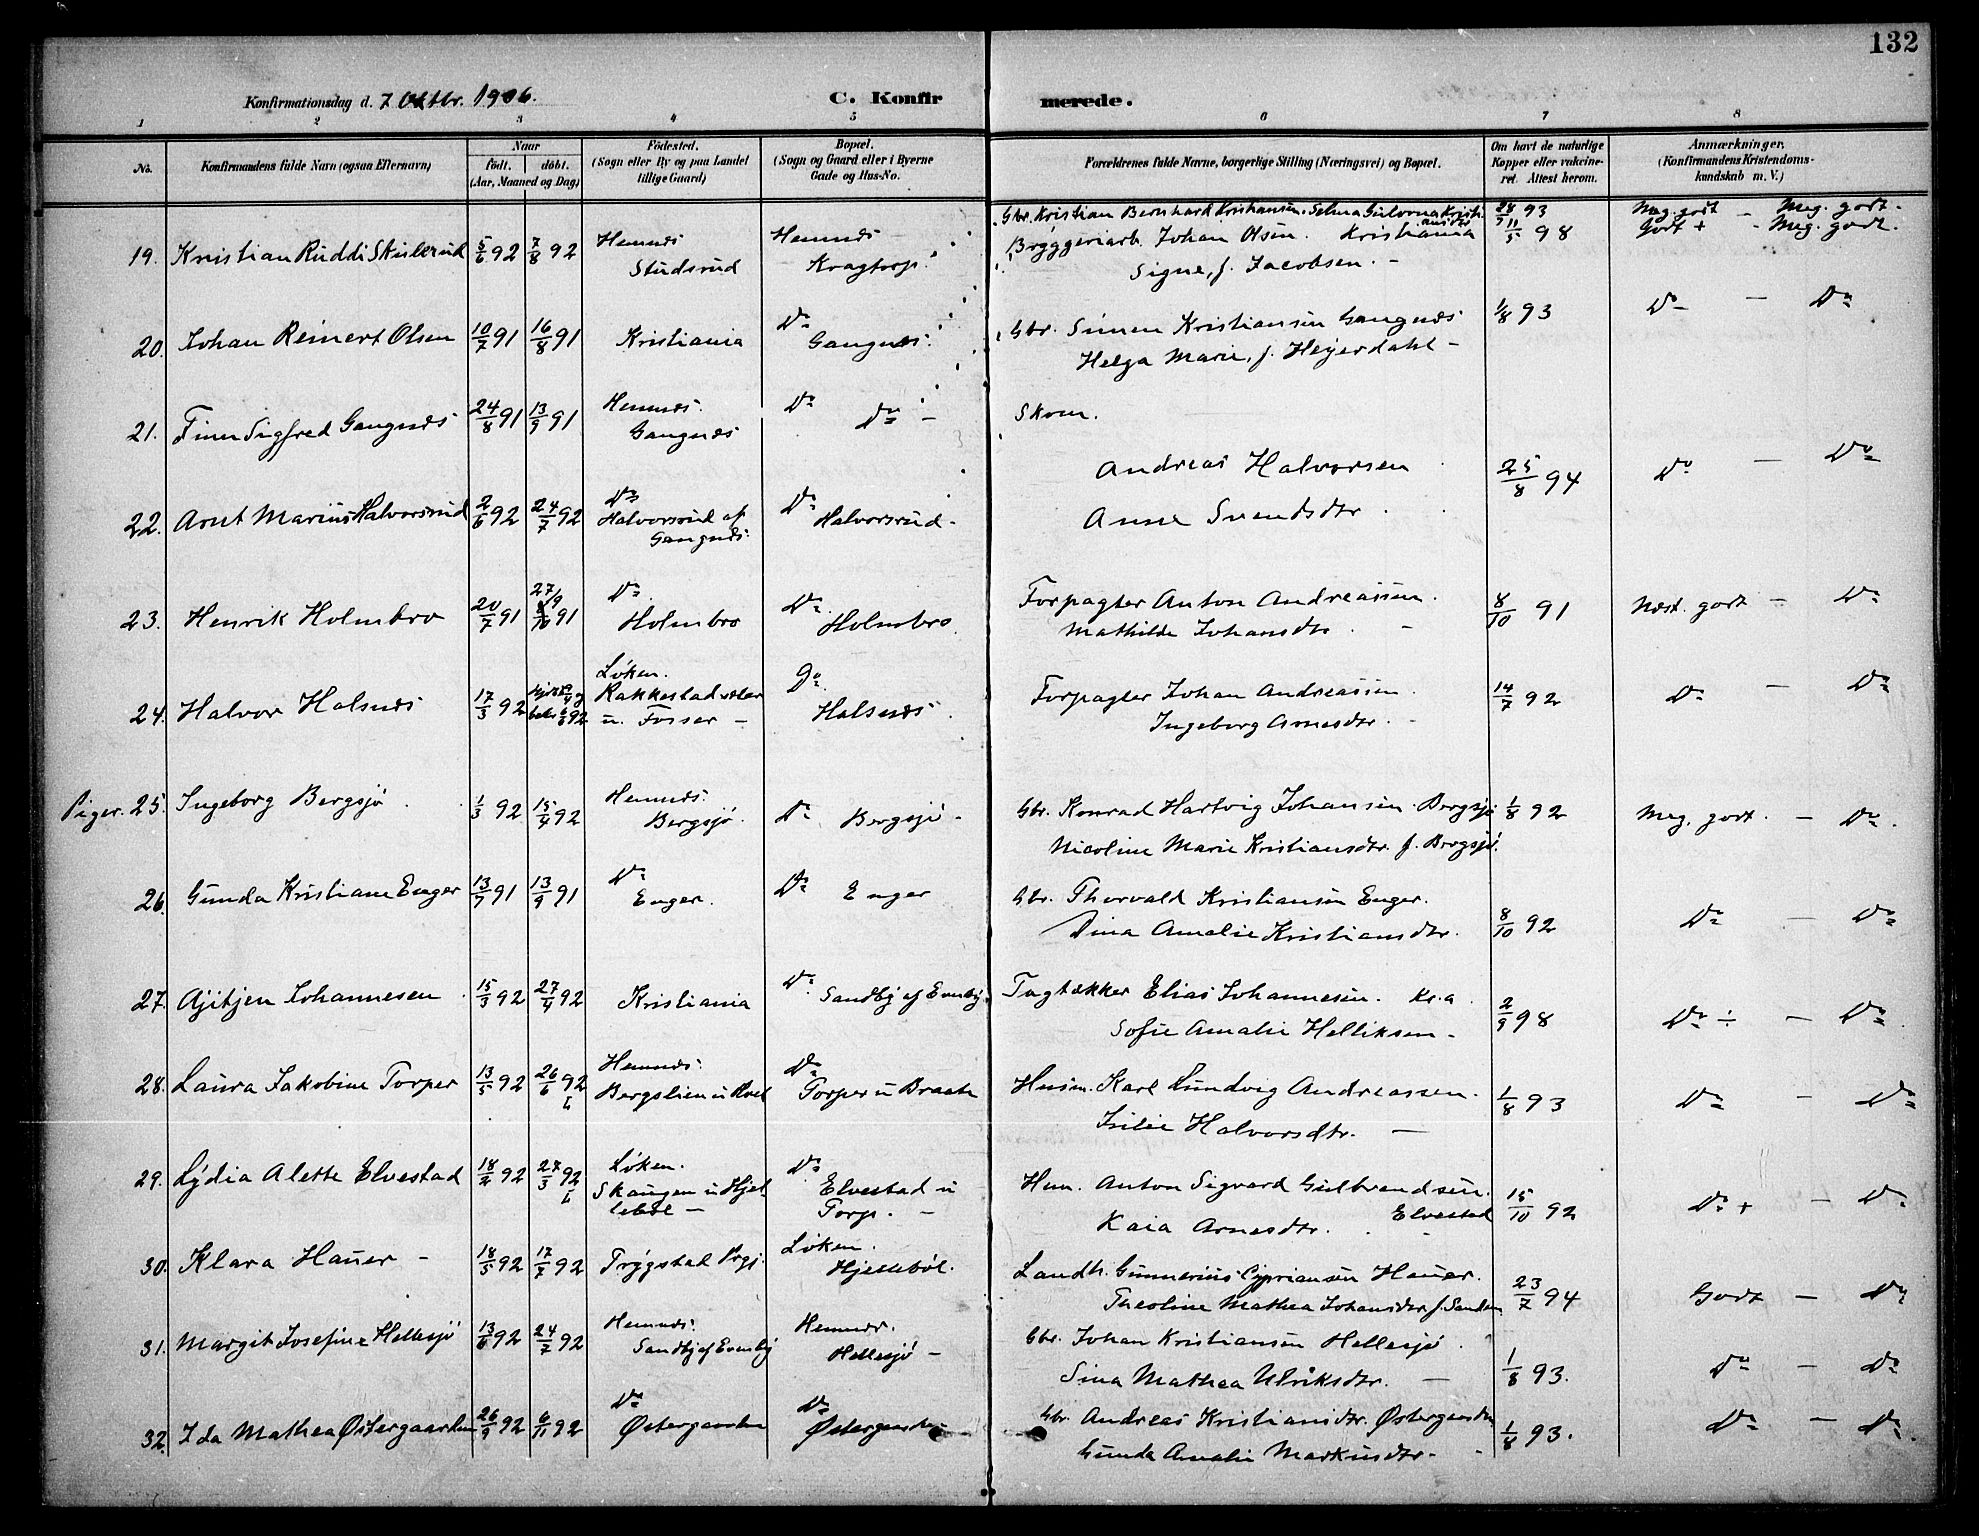 132
Konfirmationsdag d. 7 Oktbr. 1906.
C. Konfir
merede.
1 2 3 4 5 6 7 8
No.
Konfirmandens fulde Navn (ogsaa Efternavn)
Naar
født. døbt.
(Aar, Maaned og Dag)
Fødested.
(Sogn eller By og paa Landet
tillige Gaard)
Bopæl.
(Sogn og Gaard eller i Byerne
Gade og Hus-No.
Forældrenes fulde Navne, borgerlige Stilling (Næringsvei) og Bopæl.
Om havt de naturlige
Kopper eller vakcine-
ret. Attest herom.
Anmærkninger.
(Konfirmandens Kristendoms-
kundskab m. V.)
Gbr. Kristian Bernhard Kristiansen. Selma Gulovna Kristi-
ansdtr
28/7 93 Meg. godt - Meg. godt.
19. Kristian Ruddi Skulerud 5/6 92 7/8 92 Hemnæs
Studsrud
Hemnæs
Kragtorp.
Bryggeriarb. Johan Olsen. Kristiania
Signe, f. Jacobsen. -
11/5 98 Godt + - Meg. godt.
20. Johan Reinert Olsen 10/7 91 16/8 91 Kristiania
Do
Gangnæs.
Gbr. Simen Kristiansen Gangnæs
Helga Marie, f. Heyerdahl -
1/8 93 Do - Do
21. Finn Sigfred Gangnæs 24/8 91 13/9 91 Hemnæs.
Gangnæs
Do Do -
Skom.
Andreas Halvorsen
Anne Svendsdtr
25/8 94 Do - Do
22. Arnt Marius Halvorsrud 2/6 92 24/7 92 Do
Halvorsrud af
Gangnæs.
Do Halvorsrud.
23. Henrik Holmbro 20/7 91 27/9 91 Do
Holmbro
Do
Holmbro.
Forpagter Anton Andreassen.
Mathilde Johansdtr. -
8/10 91 Næst. godt - Do
24. Halvor Halsnæs 17/3 92 Løken.
Rakkestad
u. Fosser -
Do
Halsnæs.
Forpagter Johan Andreassen.
Ingeborg Arnesdtr. -
14/7 92 Do - Do
Piger. 25. Ingeborg Bergsjø 1/3 92 15/4 92 Hemnæs.
Bergsjø.
Do Bergsjø -
Gbr. Konrad Hartvig Johansen Bergsjø
Nicoline Marie Kristiansdtr. f. Bergsjø.
1/8 92 Meg. godt. - Do.
26. Gunda Kristiane Enger 13/7 91 13/9 91 Do
Enger.
Do Enger
Gbr. Thorvald Kristiansen Enger.
Dina Amalie Kristiansdtr.
8/10 92 Do - Do
27. Ajitjen Johannesen. 15/3 92 27/4 92 Kristiania
Do Sandbj af Evenby.
Tagtækker Elias Johannesen. Kr.a.
Sofie Amalie Helliksen -
2/9 98 Do ÷ - Do
28. Laura Jakobine Torper 13/5 92 26/6 92 Hemnæs.
Bergslien u
Do
Torper u Braate
Husm. Karl Ludvig Andreassen.
Isilie Halvorsdtr. -
1/8 93 Do - Do
29. Lydia Alette Elvestad 18/2 92 27/3 92 Løken.
Skaugen u Hjel
lebøl -
Do
Elvestad u
Torp. -
Hum. Anton Sigvard Gulbrandsen.
Elvestad
Kaia Arnesdtr.
15/10 92 Do + - Do
30. Klara Hauer - 18/5 92 17/7 92 Trygstad Prgj.
Løken.
Hjellebøl.
Landh. Gunnerius Cypriansen Hauer.
Theoline Mathea Johansdtr f. Sanden
23/7 94 Godt - Do
31. Margit Josefine Hellesjø 13/6 92 24/7 92 Hemnæs.
Sandbj af Evenby
Hemnæs.
Hellesjø -
Gbr. Johan Kristiansen Hellesjø.
Sina Mathea Ulriksdtr. -
1/8 93. Do - Do
32. Ida Mathea Østergaarden 26/9 92 6/11 92 Do
Østergaarden
Do
Østergaarden
Gbr. Andreas Kristiansdtr. Østergaarden
Gunda Amalie Markusdtr. -
1/8 93. Do - Do.